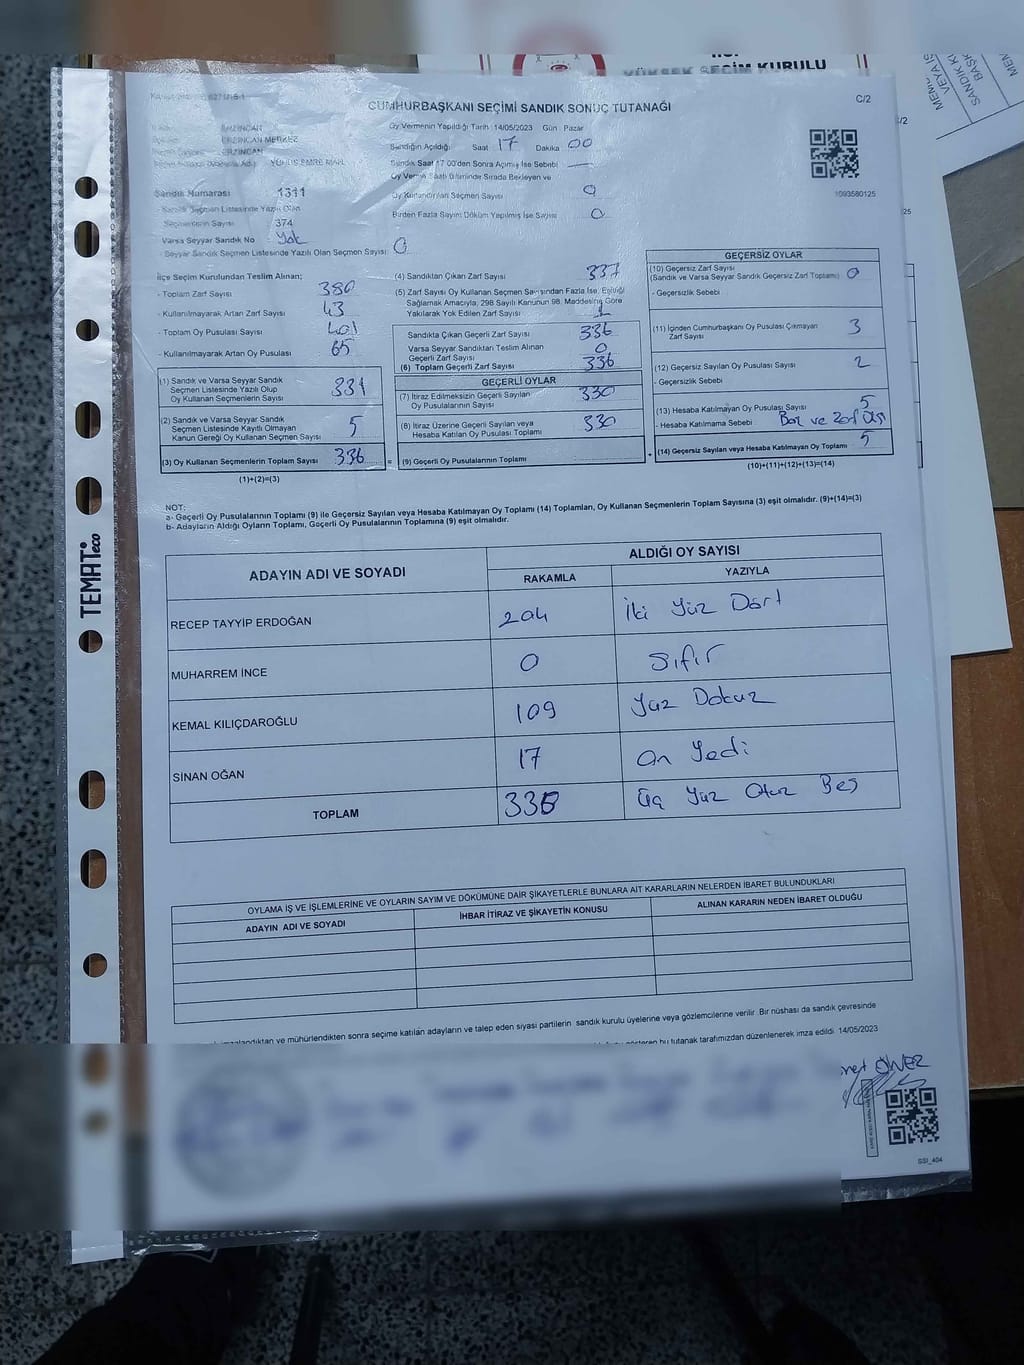 YÜKSEK SEÇİM KURULU
CUMHURBAŞKANI SEÇİMİ SANDIK SONUÇ TUTANAĞI
C/2
ERZİNCAN
ERZİNCAN MERKEZ
ERZİNCAN
YUNUS EMRE MAH.
Oy Vermenin Yapıldığı Tarih 14/05/2023 Gün Pazar
Sandığın Açıldığı Saat 17 Dakika 00
Sandık Saat 17:00'den Sonra Açılmış İse Sebebi —
Oy Verme Saati Bitiminde Sırada Bekleyen ve
Oy Kullandırılan Seçmen Sayısı 0
Birden Fazla Sayım Döküm Yapılmış İse Sayısı 0
1093580125
Sandık Numarası 1311
Sandık Seçmen Listesinde Yazılı Olan
Seçmenlerin Sayısı 374
Varsa Seyyar Sandık No Yok
- Seyyar Sandık Seçmen Listesinde Yazılı Olan Seçmen Sayısı 0
İlçe Seçim Kurulundan Teslim Alınan;
- Toplam Zarf Sayısı 380
- Kullanılmayarak Artan Zarf Sayısı 43
- Toplam Oy Pusulası Sayısı 401
- Kullanılmayarak Artan Oy Pusulası 65
(1) Sandık ve Varsa Seyyar Sandık
Seçmen Listesinde Yazılı Olup
Oy Kullanan Seçmenlerin Sayısı 331
(2) Sandık ve Varsa Seyyar Sandık
Seçmen Listesinde Kayıtlı Olmayan
Kanun Gereği Oy Kullanan Seçmen Sayısı 5
(3) Oy Kullanan Seçmenlerin Toplam Sayısı 336
(1)+(2)=(3)
=
(4) Sandıktan Çıkan Zarf Sayısı 337
(5) Zarf Sayısı Oy Kullanan Seçmen Sayısından Fazla İse, Eşitliği
Sağlamak Amacıyla, 298 Sayılı Kanunun 98. Maddesine Göre
Yakılarak Yok Edilen Zarf Sayısı 1
Sandıkta Çıkan Geçerli Zarf Sayısı 336
Varsa Seyyar Sandıktan Teslim Alınan
Geçerli Zarf Sayısı 0
(6) Toplam Geçerli Zarf Sayısı 336
GEÇERLİ OYLAR
(7) İtiraz Edilmeksizin Geçerli Sayılan
Oy Pusulalarının Sayısı 330
(8) İtiraz Üzerine Geçerli Sayılan veya
Hesaba Katılan Oy Pusulası Toplamı 330
(9) Geçerli Oy Pusulalarının Toplamı
+
GEÇERSİZ OYLAR
(10) Geçersiz Zarf Sayısı
(Sandık ve Varsa Seyyar Sandık Geçersiz Zarf Toplamı) 0
- Geçersizlik Sebebi
(11) İçinden Cumhurbaşkanı Oy Pusulası Çıkmayan
Zarf Sayısı 3
(12) Geçersiz Sayılan Oy Pusulası Sayısı 2
- Geçersizlik Sebebi
(13) Hesaba Katılmayan Oy Pusulası Sayısı 5
- Hesaba Katılmama Sebebi Boş ve Zarf Dışı
(14) Geçersiz Sayılan veya Hesaba Katılmayan Oy Toplamı 5
(10)+(11)+(12)+(13)=(14)
NOT:
a- Geçerli Oy Pusulalarının Toplamı (9) ile Geçersiz Sayılan veya Hesaba Katılmayan Oy Toplamı (14) Toplamları, Oy Kullanan Seçmenlerin Toplam Sayısına (3) eşit olmalıdır. (9)+(14)=(3)
b- Adayların Aldığı Oyların Toplamı, Geçerli Oy Pusulalarının Toplamına (9) eşit olmalıdır.
ADAYIN ADI VE SOYADI
ALDIĞI OY SAYISI
RAKAMLA YAZIYLA
RECEP TAYYİP ERDOĞAN 204 İki Yüz Dört
MUHARREM İNCE 0 Sıfır
KEMAL KILIÇDAROĞLU 109 Yüz Dokuz
SİNAN OĞAN 17 On Yedi
TOPLAM 335 Üç Yüz Otuz Beş
OYLAMA İŞ VE İŞLEMLERİNE VE OYLARIN SAYIM VE DÖKÜMÜNE DAİR ŞİKAYETLERLE BUNLARA AİT KARARLARIN NELERDEN İBARET BULUNDUKLARI
ADAYIN ADI VE SOYADI İHBAR İTİRAZ VE ŞİKAYETİN KONUSU ALINAN KARARIN NEDEN İBARET OLDUĞU
imzalandıktan ve mühürlendikten sonra seçime katılan adayların ve talep eden siyasi partilerin sandık kurulu üyelerine veya gözlemcilerine verilir. Bir nüshası da sandık çevresinde
gösteren bu tutanak tarafımızdan düzenlenerek imza edildi. 14/05/2023
ÖNER
SSI_404
TEMAT eco